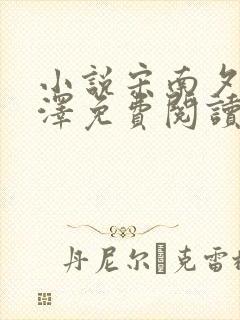 小說宋南夕
澤免費閱讀
丹尼尔 克雷